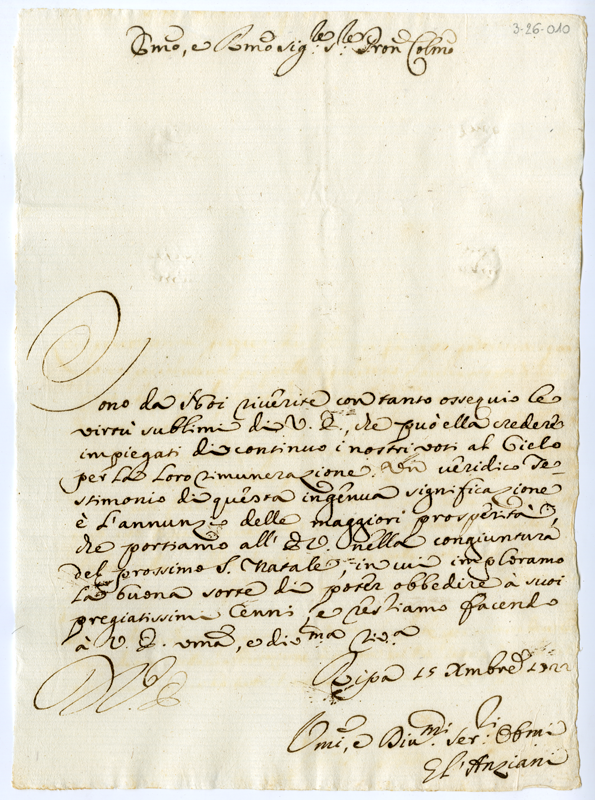 3-26-010
Emo, e Rmo Sig.re S.re Pron Colmo
Sono da Noi riverite con tanto ossequio le
virtù sublimi di V. E., che può ella credere
impiegati di continuo i nostri voti al Cielo
per la loro rimunerazione. Un veridico Te=
stimonio di questa ingenua significazione
è l'annunzio delle maggiori prosperità,
che portiamo all' E.V. nella congiuntura
del prossimo S. Natale, in cui imploriamo
la buona sorte di poter obbedire à suoi
pregiatissimi Cenni, e restiamo facendo
à V. E. uma, e divma riva
Ripa 15 Xmbre 1722
Umi, e Divmi Seri Obmi
Gl'Anziani